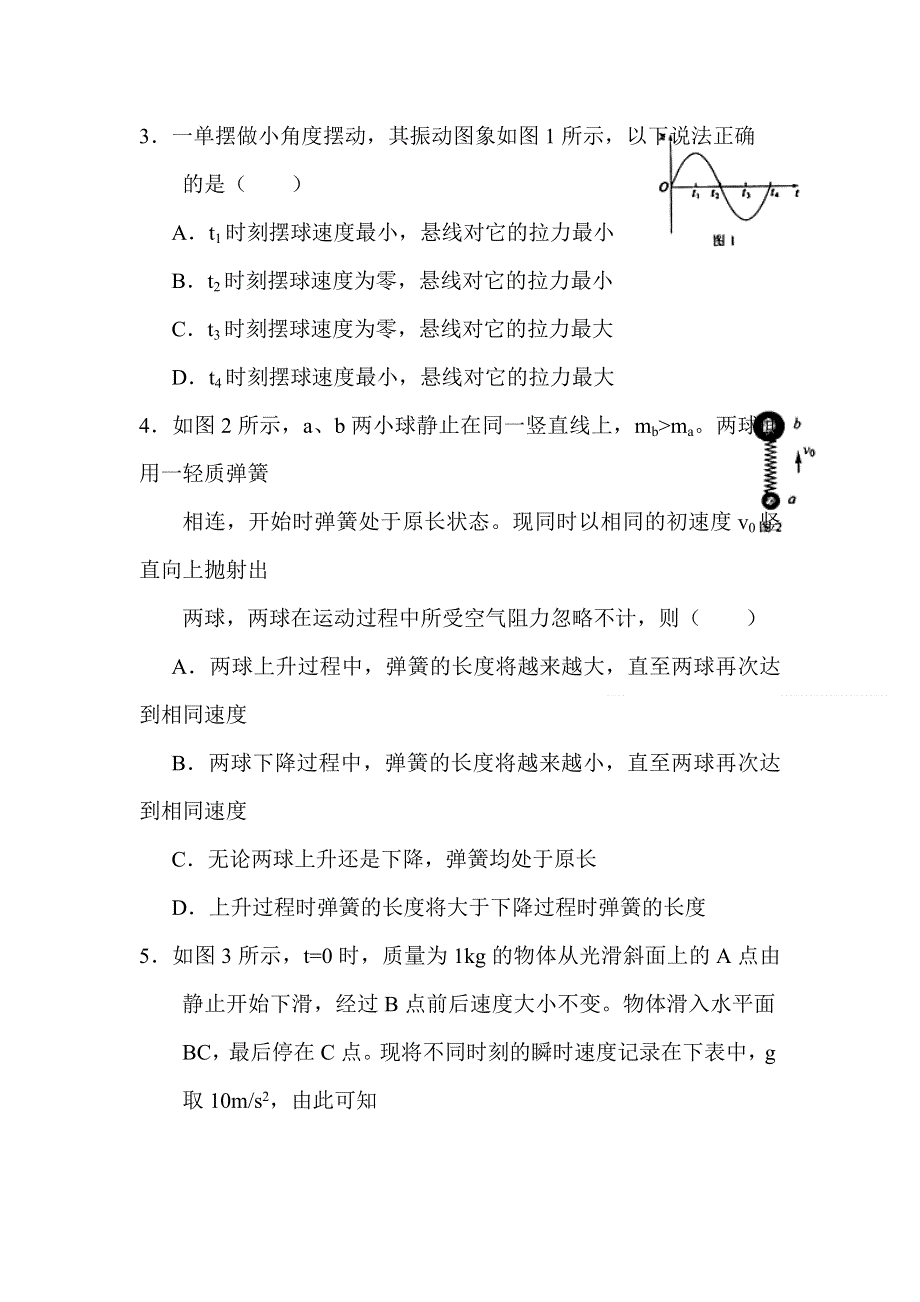 3．一单摆做小角度摆动，其振动图象如图 1 所示，以下说法正确
的是（　　）
A．t₁时刻摆球速度最小，悬线对它的拉力最小
B．t₂时刻摆球速度为零，悬线对它的拉力最小
C．t₃时刻摆球速度为零，悬线对它的拉力最大
D．t₄时刻摆球速度最小，悬线对它的拉力最大
x
O t₁ t₂ t₃ t₄ t
图 1
4．如图 2 所示，a、b 两小球静止在同一竖直线上，m_b>m_a。两球
用一轻质弹簧
相连，开始时弹簧处于原长状态。现同时以相同的初速度 v₀ 竖
直向上抛射出
两球，两球在运动过程中所受空气阻力忽略不计，则（　　）
b
v₀
a
图 2
A．两球上升过程中，弹簧的长度将越来越大，直至两球再次达
到相同速度
B．两球下降过程中，弹簧的长度将越来越小，直至两球再次达
到相同速度
C．无论两球上升还是下降，弹簧均处于原长
D．上升过程时弹簧的长度将大于下降过程时弹簧的长度
5．如图 3 所示，t=0 时，质量为 1kg 的物体从光滑斜面上的 A 点由
静止开始下滑，经过 B 点前后速度大小不变。物体滑入水平面
BC，最后停在 C 点。现将不同时刻的瞬时速度记录在下表中，g
取 10m/s²，由此可知